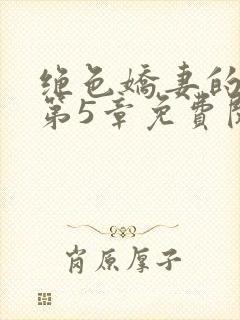 绝色嬌妻的
第5章免費阅
肖原厚子